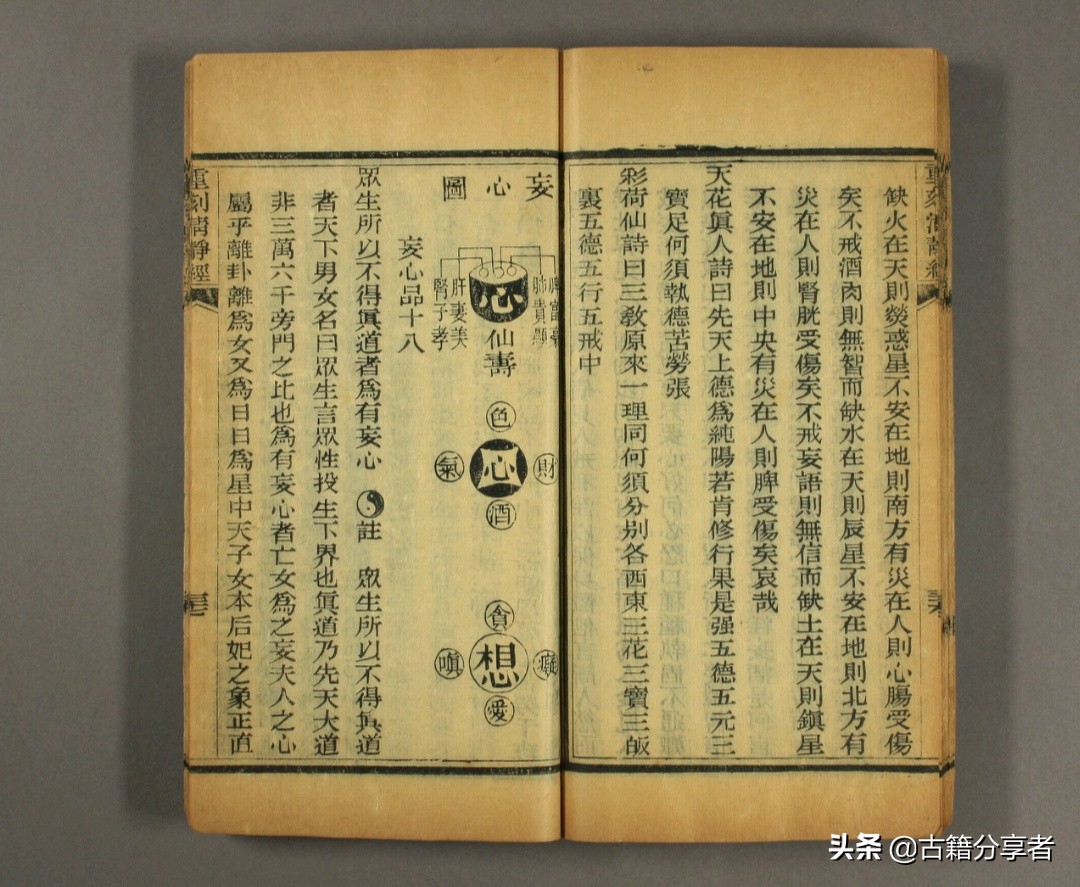 缺火在天則熒惑星不安在地則南方有災在人則心腸受傷
矣不戒酒肉則無智而缺水在天則辰星不安在地則北方有
災在人則腎胱受傷矣不戒妄語則無信而缺土在天則鎭星
不安在地則中央有災在人則脾受傷矣哀哉
天花眞人詩曰先天上德爲純陽若肯修行果是强五德五元三
寶足何須執德苦勞張
彩荷仙詩曰三敎原來一理同何須分别各西東三花三寶三皈
裏五德五行五戒中
妄心圖
肺貴顯
心
肝妻美
腎子孝
仙壽
色
財
心
氣
酒
貪
癡
想
嗔
愛
妄心品十八
眾生所以不得眞道者爲有妄心
註 眾生所以不得眞道
者天下男女名曰眾生言眾性投生下界也眞道乃先天大道
非三萬六千旁門之比也爲有妄心者亡女爲之妄夫人之心
屬乎離卦離爲女又爲日日爲星中天子女本后妃之象正直
重刻清靜經
头条 @古籍分享者